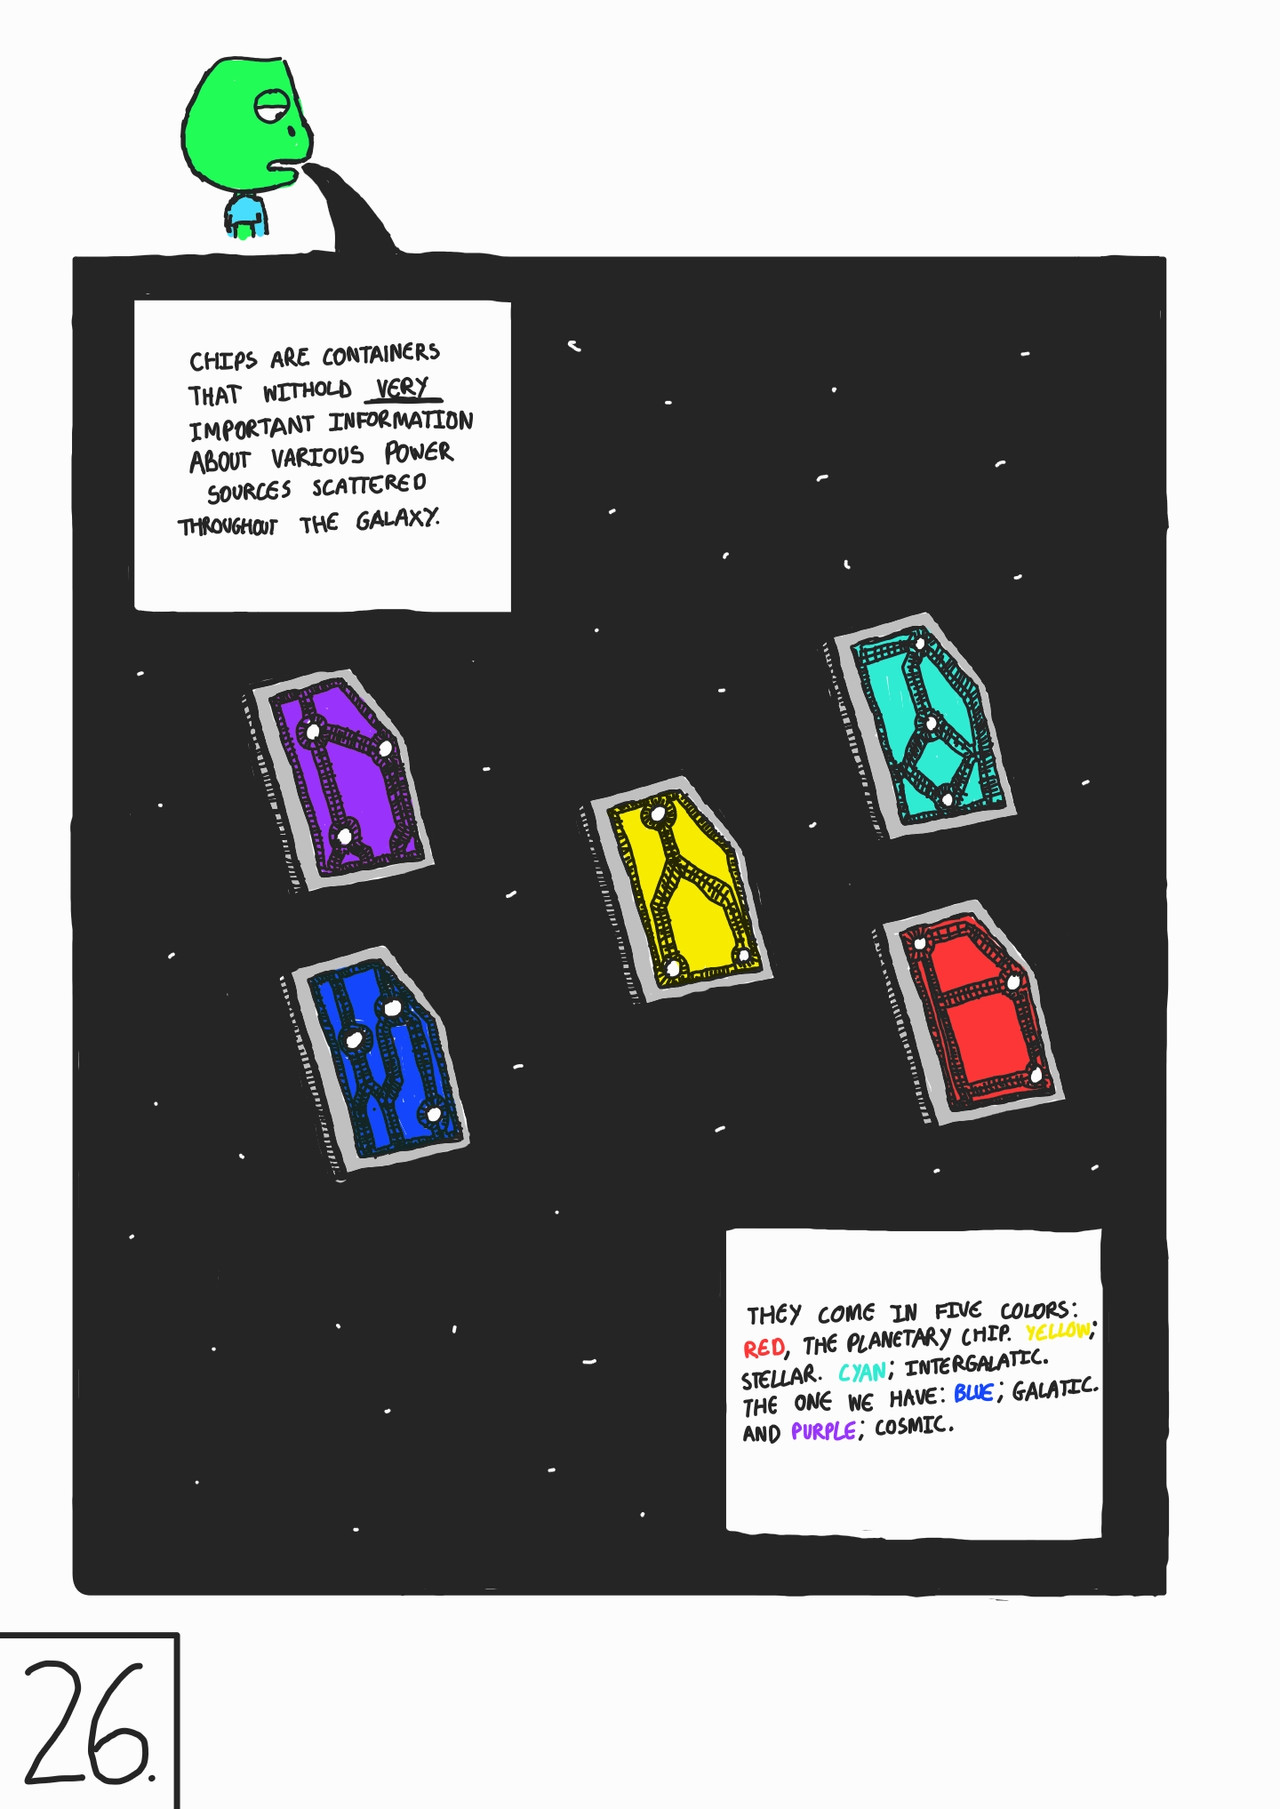 CHIPS ARE CONTAINERS
THAT WITHOLD VERY
IMPORTANT INFORMATION
ABOUT VARIOUS POWER
SOURCES SCATTERED
THROUGHOUT THE GALAXY.
THEY COME IN FIVE COLORS:
RED, THE PLANETARY CHIP. YELLOW;
STELLAR. CYAN; INTERGALATIC.
THE ONE WE HAVE: BLUE; GALATIC.
AND PURPLE; COSMIC.
26.